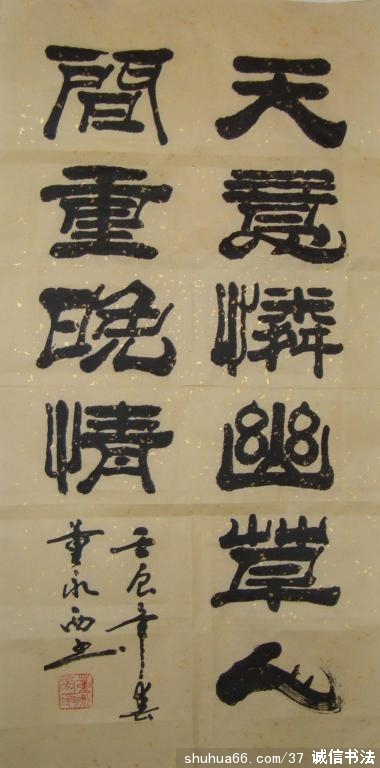 天意憐幽草人
間重晚情
壬辰年春
董永西书
shuhua66.com/37 诚信书法